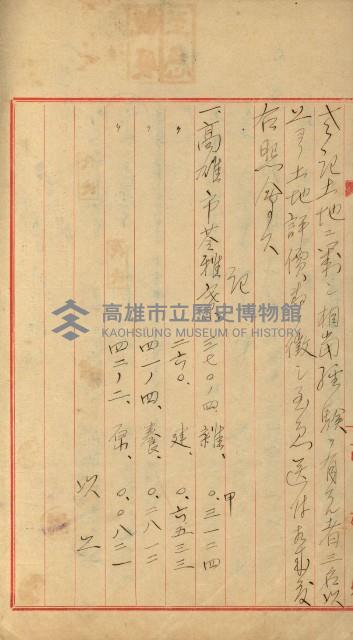 右記土地ニ對シ相當經驗ヲ有スル者三名以
上ヲ土地評價書徵シ至急送付相成度
右照會ス
記
一、高雄市苓雅寮 三七〇ノ四 雜、 〇.三一二四
〃 二六〇. 建、 〇.六五三三
〃 四一ノ四、養、 〇.二八一二
〃 四二ノ二、原、 〇.〇八三一
甲
以上
高雄市立歷史博物館
KAOHSIUNG MUSEUM OF HISTORY